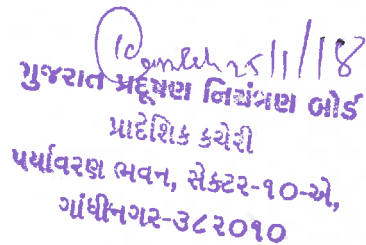 25/1/18
ગુજરાત પ્રદૂષણ નિયંત્રણ બોર્ડ
પ્રાદેશિક કચેરી
પર્યાવરણ ભવન, સેક્ટર-૧૦-એ,
ગાંધીનગર-૩૮૨૦૧૦